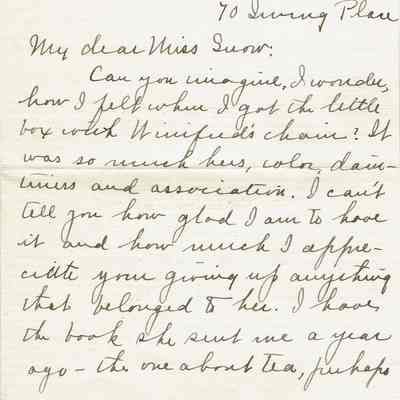 70 Irving Place
My dear Miss Snow:
Can you imagine, I wonder,
how I felt when I got the little
box with Winifred's chain? It
was so much hers, color, dain-
tiness and association. I can't
tell you how glad I am to have
it and how much I appre-
ciate your giving up anything
that belonged to her. I have
the book she sent me a year
ago - the one about tea, perhaps